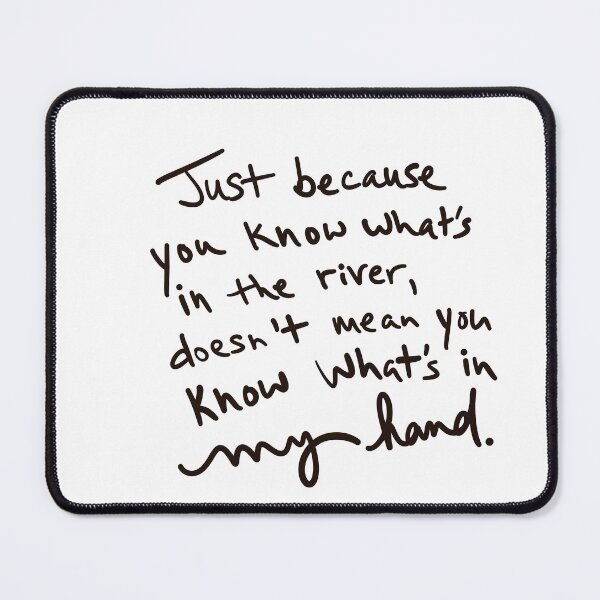 Just because
you know what's
in the river,
doesn't mean you
know what's in
my hand.